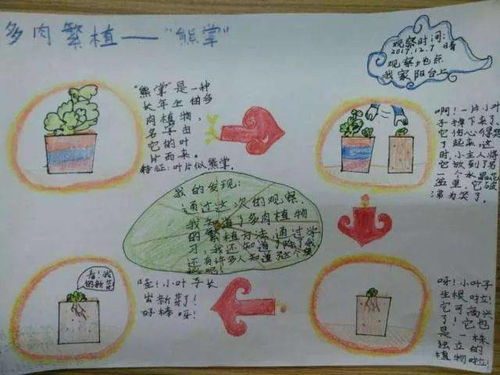 多肉繁植——"熊掌"
观察时间:
2017.12.7 晴
观察地点
我家阳台上
"熊掌"是一种
长年生的多
肉植物,
名子由
它的叶
片而来.
特征:叶片似熊掌.
啊!一片小
子掉下来了.
它伤心得哭
了起来.这
时,小主人将
它放到了
一个水晶花
盆里,它破
涕为笑了.
我的发现:
通过这次的观察,
我知道了多肉植物
的繁植方法,通过学
习,我还知道了除了
还有许多
吧!
看!我
的新芽
哇!小叶子长
出新芽了!
好棒呀!
呀!小叶子
生根啦!立
它可高兴
了!它也
是一株
独立的
植物啦!